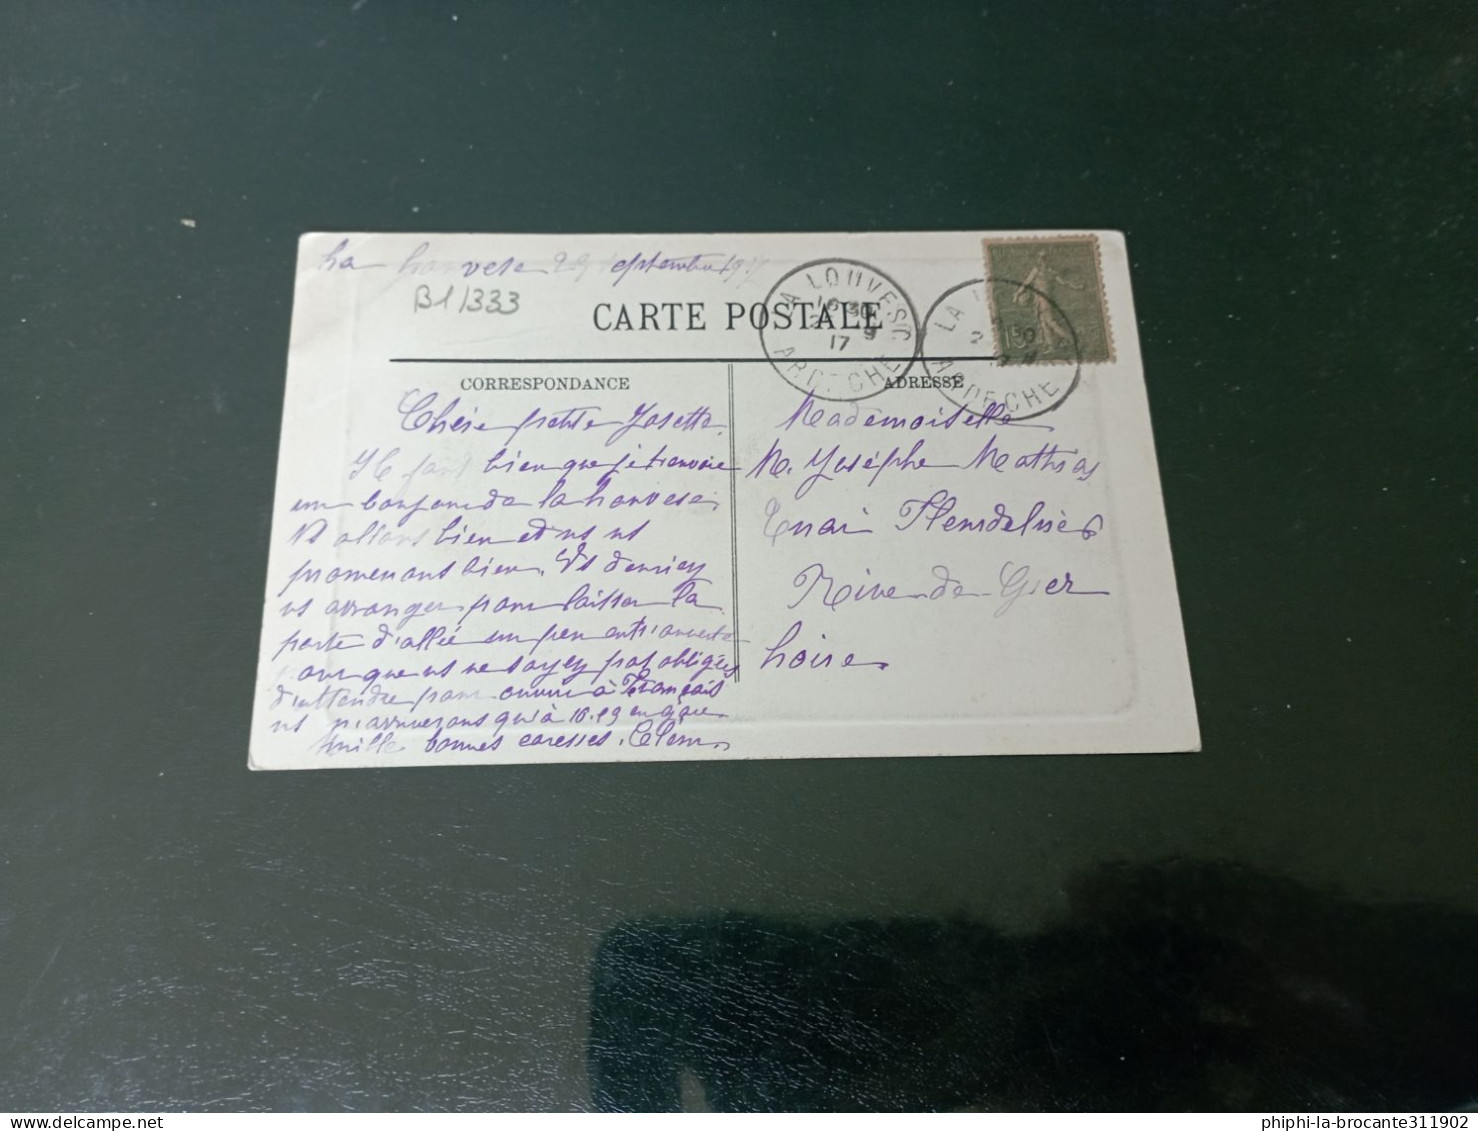 La Louvesc 29 septembre 1917
B1/333
CARTE POSTALE
LA LOUVESC
16 30
9
17
ARDECHE
LA
ARDECHE
15
CORRESPONDANCE
ADRESSE
Chère petite Josette.
Il faut bien que je t'envoie
un bonjour de la Louvesc.
Ns allons bien et ns ns
promenons bien. Vs devriez
vs arranger pour laisser la
porte d'allée un peu entr'ouverte
pour que vs ne soyez pas obligées
d'attendre pour ouvrir à Français
ns n'arriverons qu'à 16.19 en gare
Mille bonnes caresses. Clem.
Mademoiselle
M. Josèphe Mathias
Quai
Rive-de-Gier
Loire
phiphi-la-brocante311902